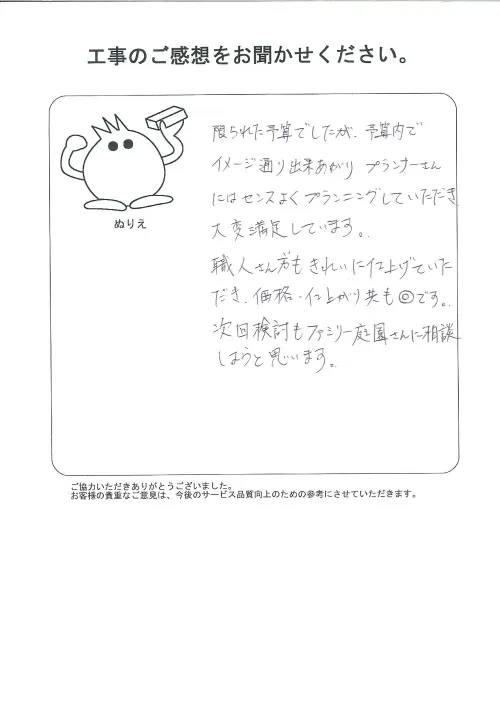 工事のご感想をお聞かせください。
限られた予算でしたが、予算内で
イメージ通り出来あがり プランナーさん
にはセンスよくプランニングしていただき
大変満足しています。
職人さん方もきれいに仕上げていた
だき、価格・仕上がり共も◎です。
次回検討もファミリー庭園さんに相談
しようと思います。
ぬりえ
ご協力いただきありがとうございました。
お客様の貴重なご意見は、今後のサービス品質向上のための参考にさせていただきます。